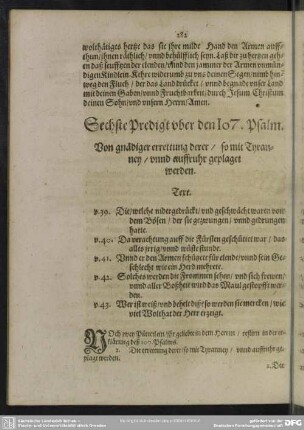 182
wolthätiges hertze das sie ihre milde Hand den Armen auff-
thun/ ihnen räthlich/ vnd behülfflich seyn. Laß dir zu hertzen gehen
daß seufftzen der elenden/ vnnd den jammer der Armen vnmün-
digen Kindlein. Kehre wider vmb zu vns deinen Segen/ nimb hin-
weg den Fluch/ der das Land drücket/ vnnd begnade vnser Land
mit deinen Gaben/ vnnd Fruchtbarkeit/ durch Jesum Christum
deinen Sohn/ vnd vnsern Herrn/ Amen.
Sechste Predigt vber den 107. Psalm.
Von gnädiger errettung derer/ so mit Tyran-
ney/ vnnd auffruhr geplaget
werden.
Text.
v. 39. Die/ welche nidergedrückt/ vnd geschwächt waren von
dem Bösen/ der sie gezwungen/ vnnd gedrungen
hatte.
v. 40. Da verachtung auff die Fürsten geschüttet war/ das
alles jrrig/ vnnd wüste stunde.
v. 41. Vnnd er den Armen schützete für elende/ vnnd sein Ge-
schlecht wie ein Herd mehrete.
v. 42. Solches werden die Frommen sehen/ vnd sich frewen/
vnnd aller Boßheit wird das Maul gestopfft wer-
den.
v. 43. Wer ist weiß/ vnd behelt diß? so werden sie mercken/ wie
viel Wolthat der Herr erzeigt.
NOch zwey Pünctlein ihr geliebte in dem Herrn/ restirn in der er-
klärung deß 107. Psalms.
1. Die errettung derer/ so mit Tyranney/ vnnd auffruhr ge-
plaget werden.
2. Der